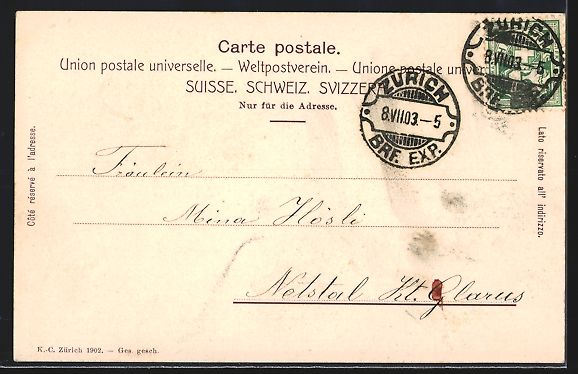 Carte postale.
Union postale universelle. — Weltpostverein. — Unione postale univer
SUISSE. SCHWEIZ. SVIZZER
Nur für die Adresse.
ZÜRICH
8.VII.03.–5
BRF. EXP.
ZÜRICH
8.VII.03.–5
BRF.
Côté réservé à l'adresse.
Lato riservato all' indirizzo.
Fräulein
Mina Hösli
Netstal Kt. Glarus
K.-C. Zürich 1902. — Ges. gesch.